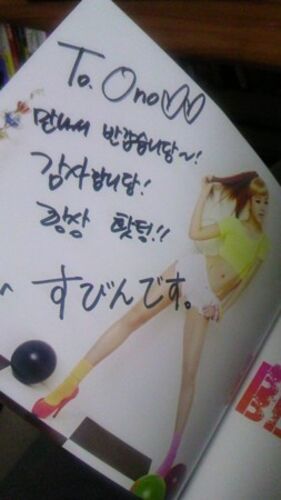 To. Ono♡♡
만나서 반갑습니당~!
감사합니당!
항상 홧팅!!
~ すびんです。